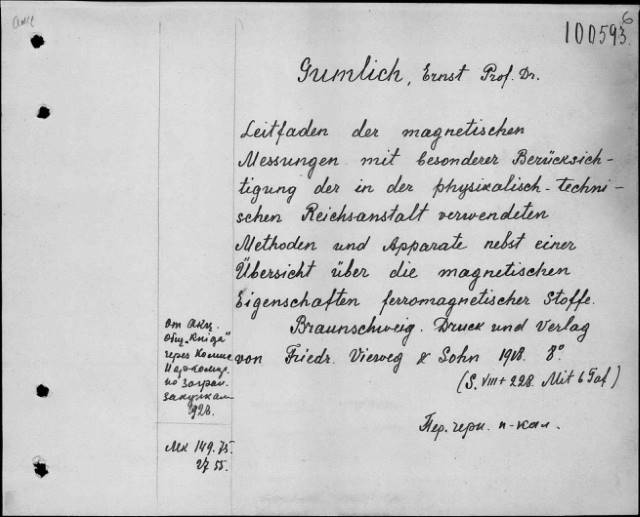 100593
6
Gumlich, Ernst Prof. Dr.
Leitfaden der magnetischen
Messungen mit besonderer Berücksich-
tigung der in der physikalisch-techni-
schen Reichsanstalt verwendeten
Methoden und Apparate nebst einer
Übersicht über die magnetischen
Eigenschaften ferromagnetischer Stoffe.
Braunschweig. Druck und Verlag
von Friedr. Vieweg & Sohn 1918. 8°
(S. VIII + 228. Mit 6 Taf.)
Пер. черн. п-кал.
От Акц.
Общ. "Книга"
через Комис
Наркомпр.
по загран.
закупкам
1921.
Мк 149.75.
27 55.